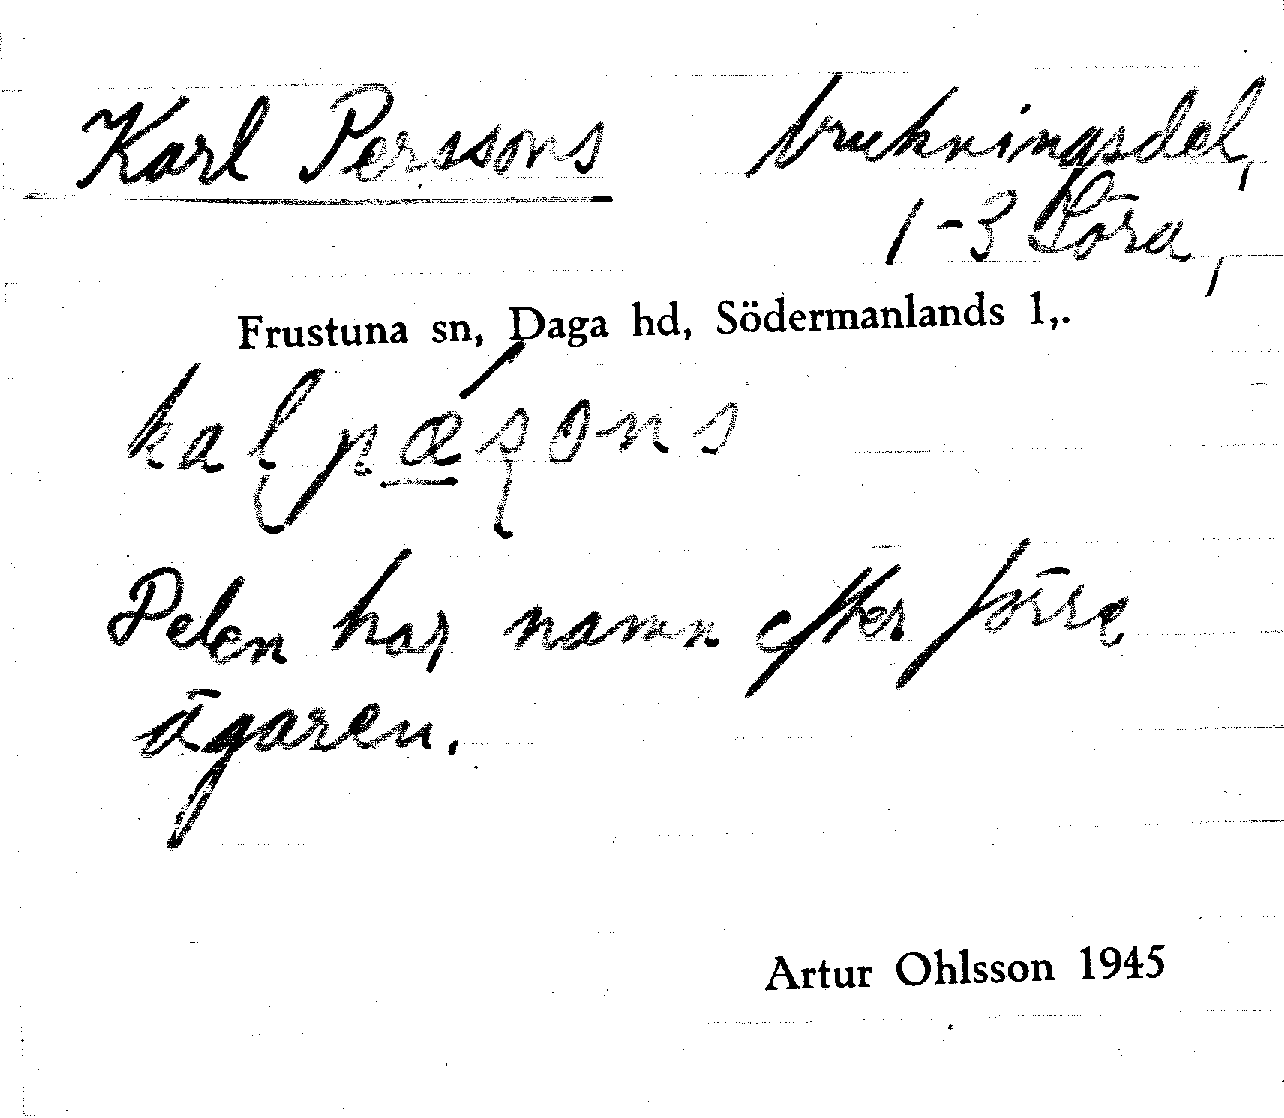 Karl Perssons brukningsdel,
1-3 Löra,
Frustuna sn, Daga hd, Södermanlands l,.
Delen har namn efter förre
ägaren.
Artur Ohlsson 1945